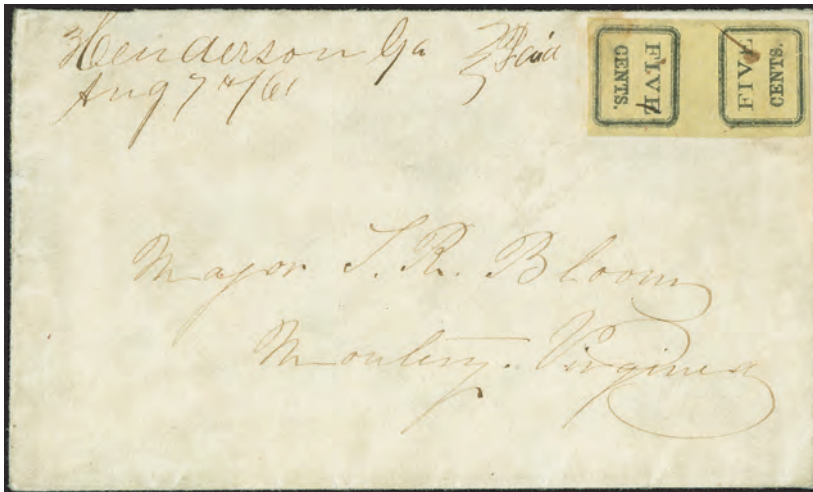 Henderson Ga Paid
Aug 7th/61
FIVE
CENTS.
FIVE
CENTS.
Major S. R. Bloom
Virginia